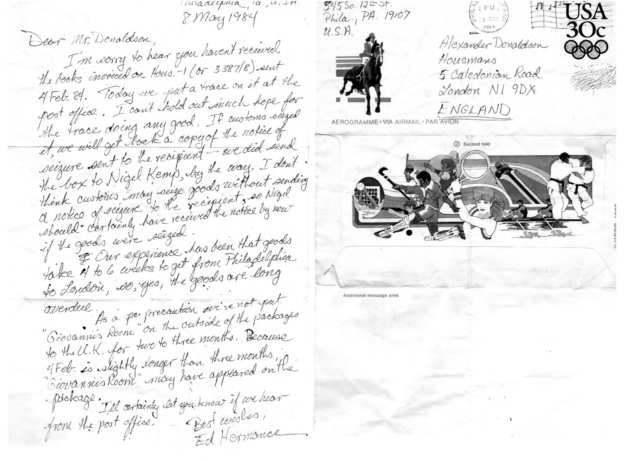 Philadelphia, Pa., U.S.A
8 May 1984
Dear Mr. Donaldson,
I'm sorry to hear you haven't received
the books invoiced on Hous.-1 (or 3587/8) sent
4 Feb. 84. Today we put a trace on it at the
post office. I can't hold out much hope for
the trace doing any good. If customs seized
it, we will get back a copy of the notice of
seizure sent to the recipient – we did send
the box to Nigel Kemp, by the way. I don't
think customs may seize goods without sending
a notice of seizure to the recipient, so Nigel
should certainly have received the notice by now
if the goods were seized.
Our experience has been that goods
take 4 to 6 weeks to get from Philadelphia
to London, so, yes, the goods are long
overdue.
As a precaution we've not put
"Giovanni's Room" on the outside of the packages
to the U.K. for two to three months. Because
4 Feb. is slightly longer than three months,
"Giovanni's Room" may have appeared on the
package.
I'll certainly let you know if we hear
from the post office.
Best wishes,
Ed Hermance
345 So. 12th St.
Phila., PA. 19107
U.S.A.
PM
USA
30c
Alexander Donaldson
Housmans
5 Caledonian Road
London N1 9DX
ENGLAND
AEROGRAMME • VIA AIRMAIL • PAR AVION
2 Second fold
Additional message area